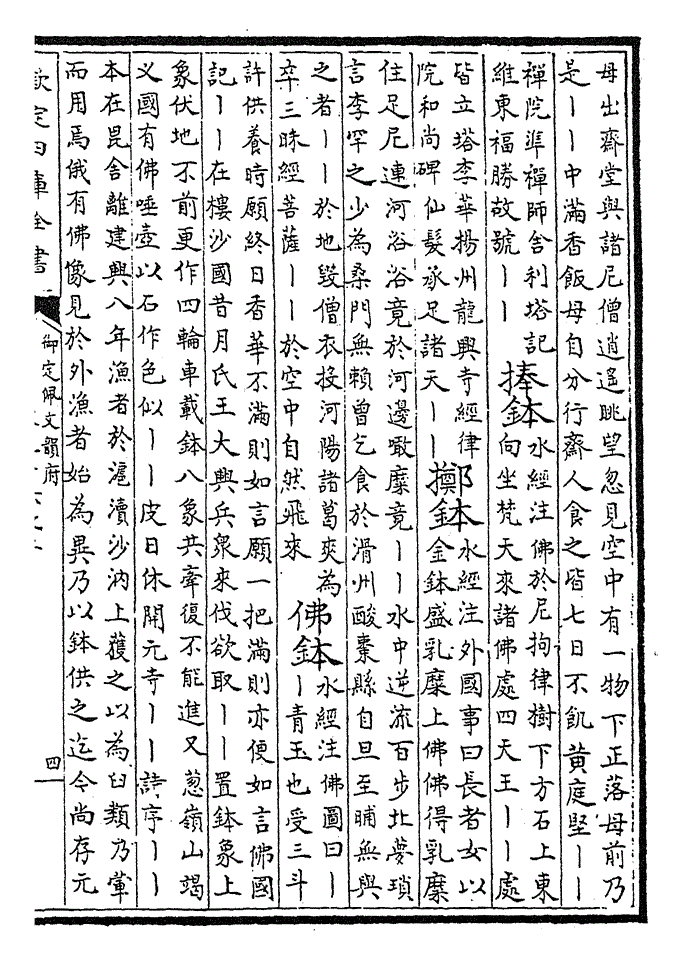 母出齋堂與諸尼僧逍遙眺望忽見空中有一物下正落母前乃
是丨丨中滿香飯母自分行齋人食之皆七日不飢 黄庭堅丨丨
禪院準禪師舍利塔記
維東福勝故號丨丨
捧鉢
水經注佛於尼拘律樹下方石上東
向坐梵天來諸佛處四天王丨丨處
皆立塔李華揚州龍興寺經律
院和尚碑仙髮承足諸天丨丨
擲鉢
水經注外國事曰長者女以
金鉢盛乳糜上佛佛得乳糜
住足尼連河浴浴竟於河邊噉糜竟丨丨水中逆流百步北夢瑣
言李罕之少為桑門無賴曾乞食於滑州酸棗縣自旦至晡無與
之者丨丨於地毁僧衣投河陽諸葛爽為
卒三昧經菩薩丨丨於空中自然飛來
佛鉢
水經注佛圖曰丨
丨青玉也受三斗
許供養時願終日香華不滿則如言願一把滿則亦便如言佛國
記丨丨在樓沙國昔月氏王大興兵衆來伐欲取丨丨置鉢象上
象伏地不前更作四輪車載鉢八象共牽復不能進又葱嶺山竭
义國有佛唾壺以石作色似丨丨皮日休開元寺丨丨詩序丨丨
本在毘舍離建興八年漁者於滬瀆沙汭上獲之以為臼類乃葷
而用焉俄有佛像見於外漁者始為異乃以鉢供之迄今尚存元
欽定四庫全書
御定佩文韻府
四